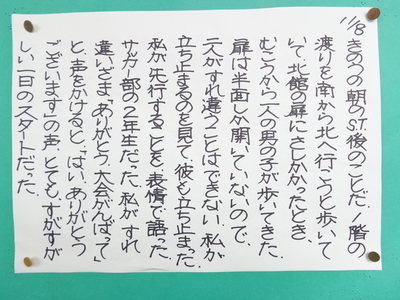 11/8
きのうの朝のS.T.後のことだ。1階の
渡りを南から北へ行こうと歩いて
いて、北館の扉にさしかかったとき、
むこうから一人の男の子が歩いてきた。
扉は半面しか開いていないので、
二人がすれ違うことはできない。私が
立ち止まるのを見て、彼も立ち止まった。
私が先行することを表情で語った。
サッカー部の2年生だった。私がすれ
違いざま「ありがとう。大会がんばって」
と声をかけると、「はい、ありがとう
ございます」の声。とてもすがすが
しい一日のスタートだった。